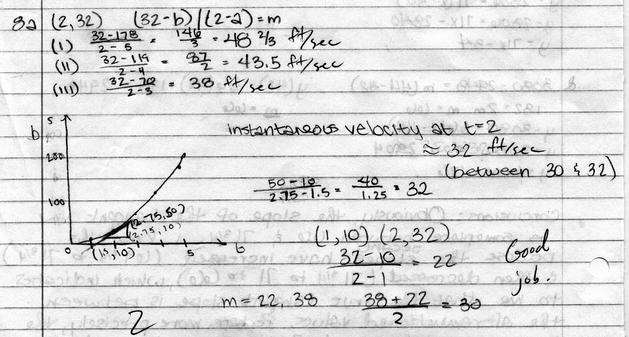 8a (2,32) (32-b)/(2-a)=m
(i) 32-178/2-5 = 146/3 = 48 2/3 ft/sec
(ii) 32-119/2-4 = 87/2 = 43.5 ft/sec
(iii) 32-70/2-3 = 38 ft/sec
b s
instantaneous velocity at t=2
≈ 32 ft/sec
(between 30 & 32)
200
50-10/2.75-1.5 = 40/1.25 = 32
100
(2.75,50)
(2.75,10)
0 (1.5,10) 5 t
(1,10) (2,32)
32-10/2-1 = 22
Good
job.
m=22, 38 38+22/2 = 30
2